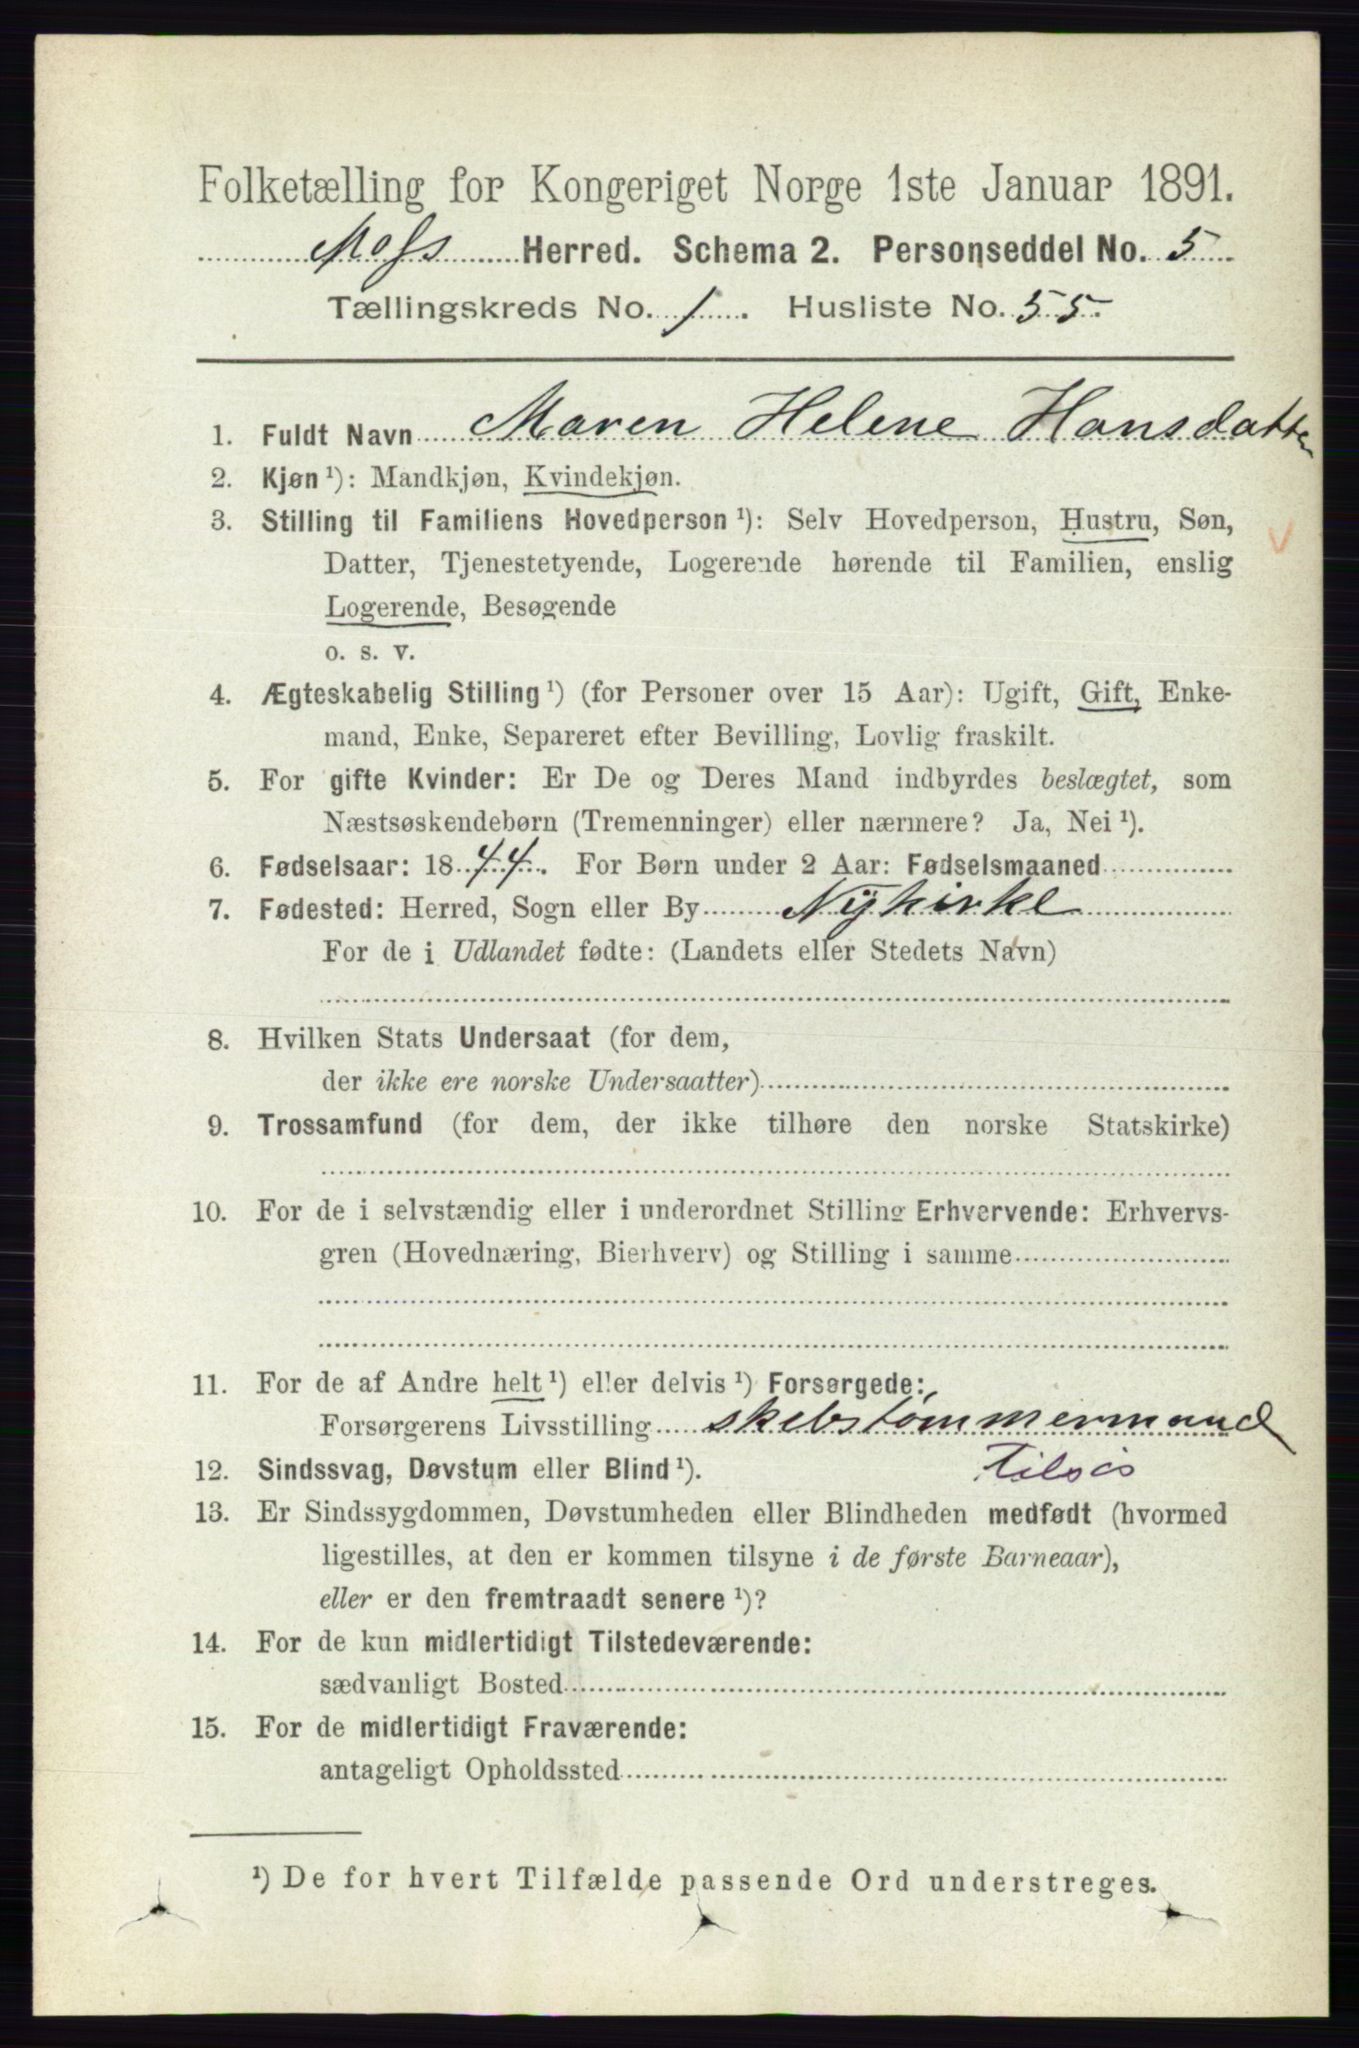 Folketælling for Kongeriget Norge 1ste Januar 1891.
Moss Herred. Schema 2. Personseddel No. 5
Tællingskreds No. 1. Husliste No. 55.
1. Fuldt Navn Maren Helene Hansdatter
2. Kjøn ¹): Mandkjøn, Kvindekjøn.
3. Stilling til Familiens Hovedperson ¹): Selv Hovedperson, Hustru, Søn,
Datter, Tjenestetyende, Logerende hørende til Familien, enslig
Logerende, Besøgende
o. s. v.
4. Ægteskabelig Stilling ¹) (for Personer over 15 Aar): Ugift, Gift, Enke-
mand, Enke, Separeret efter Bevilling, Lovlig fraskilt.
5. For gifte Kvinder: Er De og Deres Mand indbyrdes beslægtet, som
Næstsøskendebørn (Tremenninger) eller nærmere? Ja, Nei ¹).
6. Fødselsaar: 1844. For Børn under 2 Aar: Fødselsmaaned
7. Fødested: Herred, Sogn eller By Nykirke
For de i Udlandet fødte: (Landets eller Stedets Navn)
8. Hvilken Stats Undersaat (for dem,
der ikke ere norske Undersaatter)
9. Trossamfund (for dem, der ikke tilhøre den norske Statskirke)
10. For de i selvstændig eller i underordnet Stilling Erhvervende: Erhvervs-
gren (Hovednæring, Bierhverv) og Stilling i samme
11. For de af Andre helt ¹) eller delvis ¹) Forsørgede:
Forsørgerens Livsstilling skebstømmermand
12. Sindssvag, Døvstum eller Blind ¹). tilsøs
13. Er Sindssygdommen, Døvstumheden eller Blindheden medfødt (hvormed
ligestilles, at den er kommen tilsyne i de første Barneaar),
eller er den fremtraadt senere ¹)?
14. For de kun midlertidigt Tilstedeværende:
sædvanligt Bosted
15. For de midlertidigt Fraværende:
antageligt Opholdssted
¹) De for hvert Tilfælde passende Ord understreges.